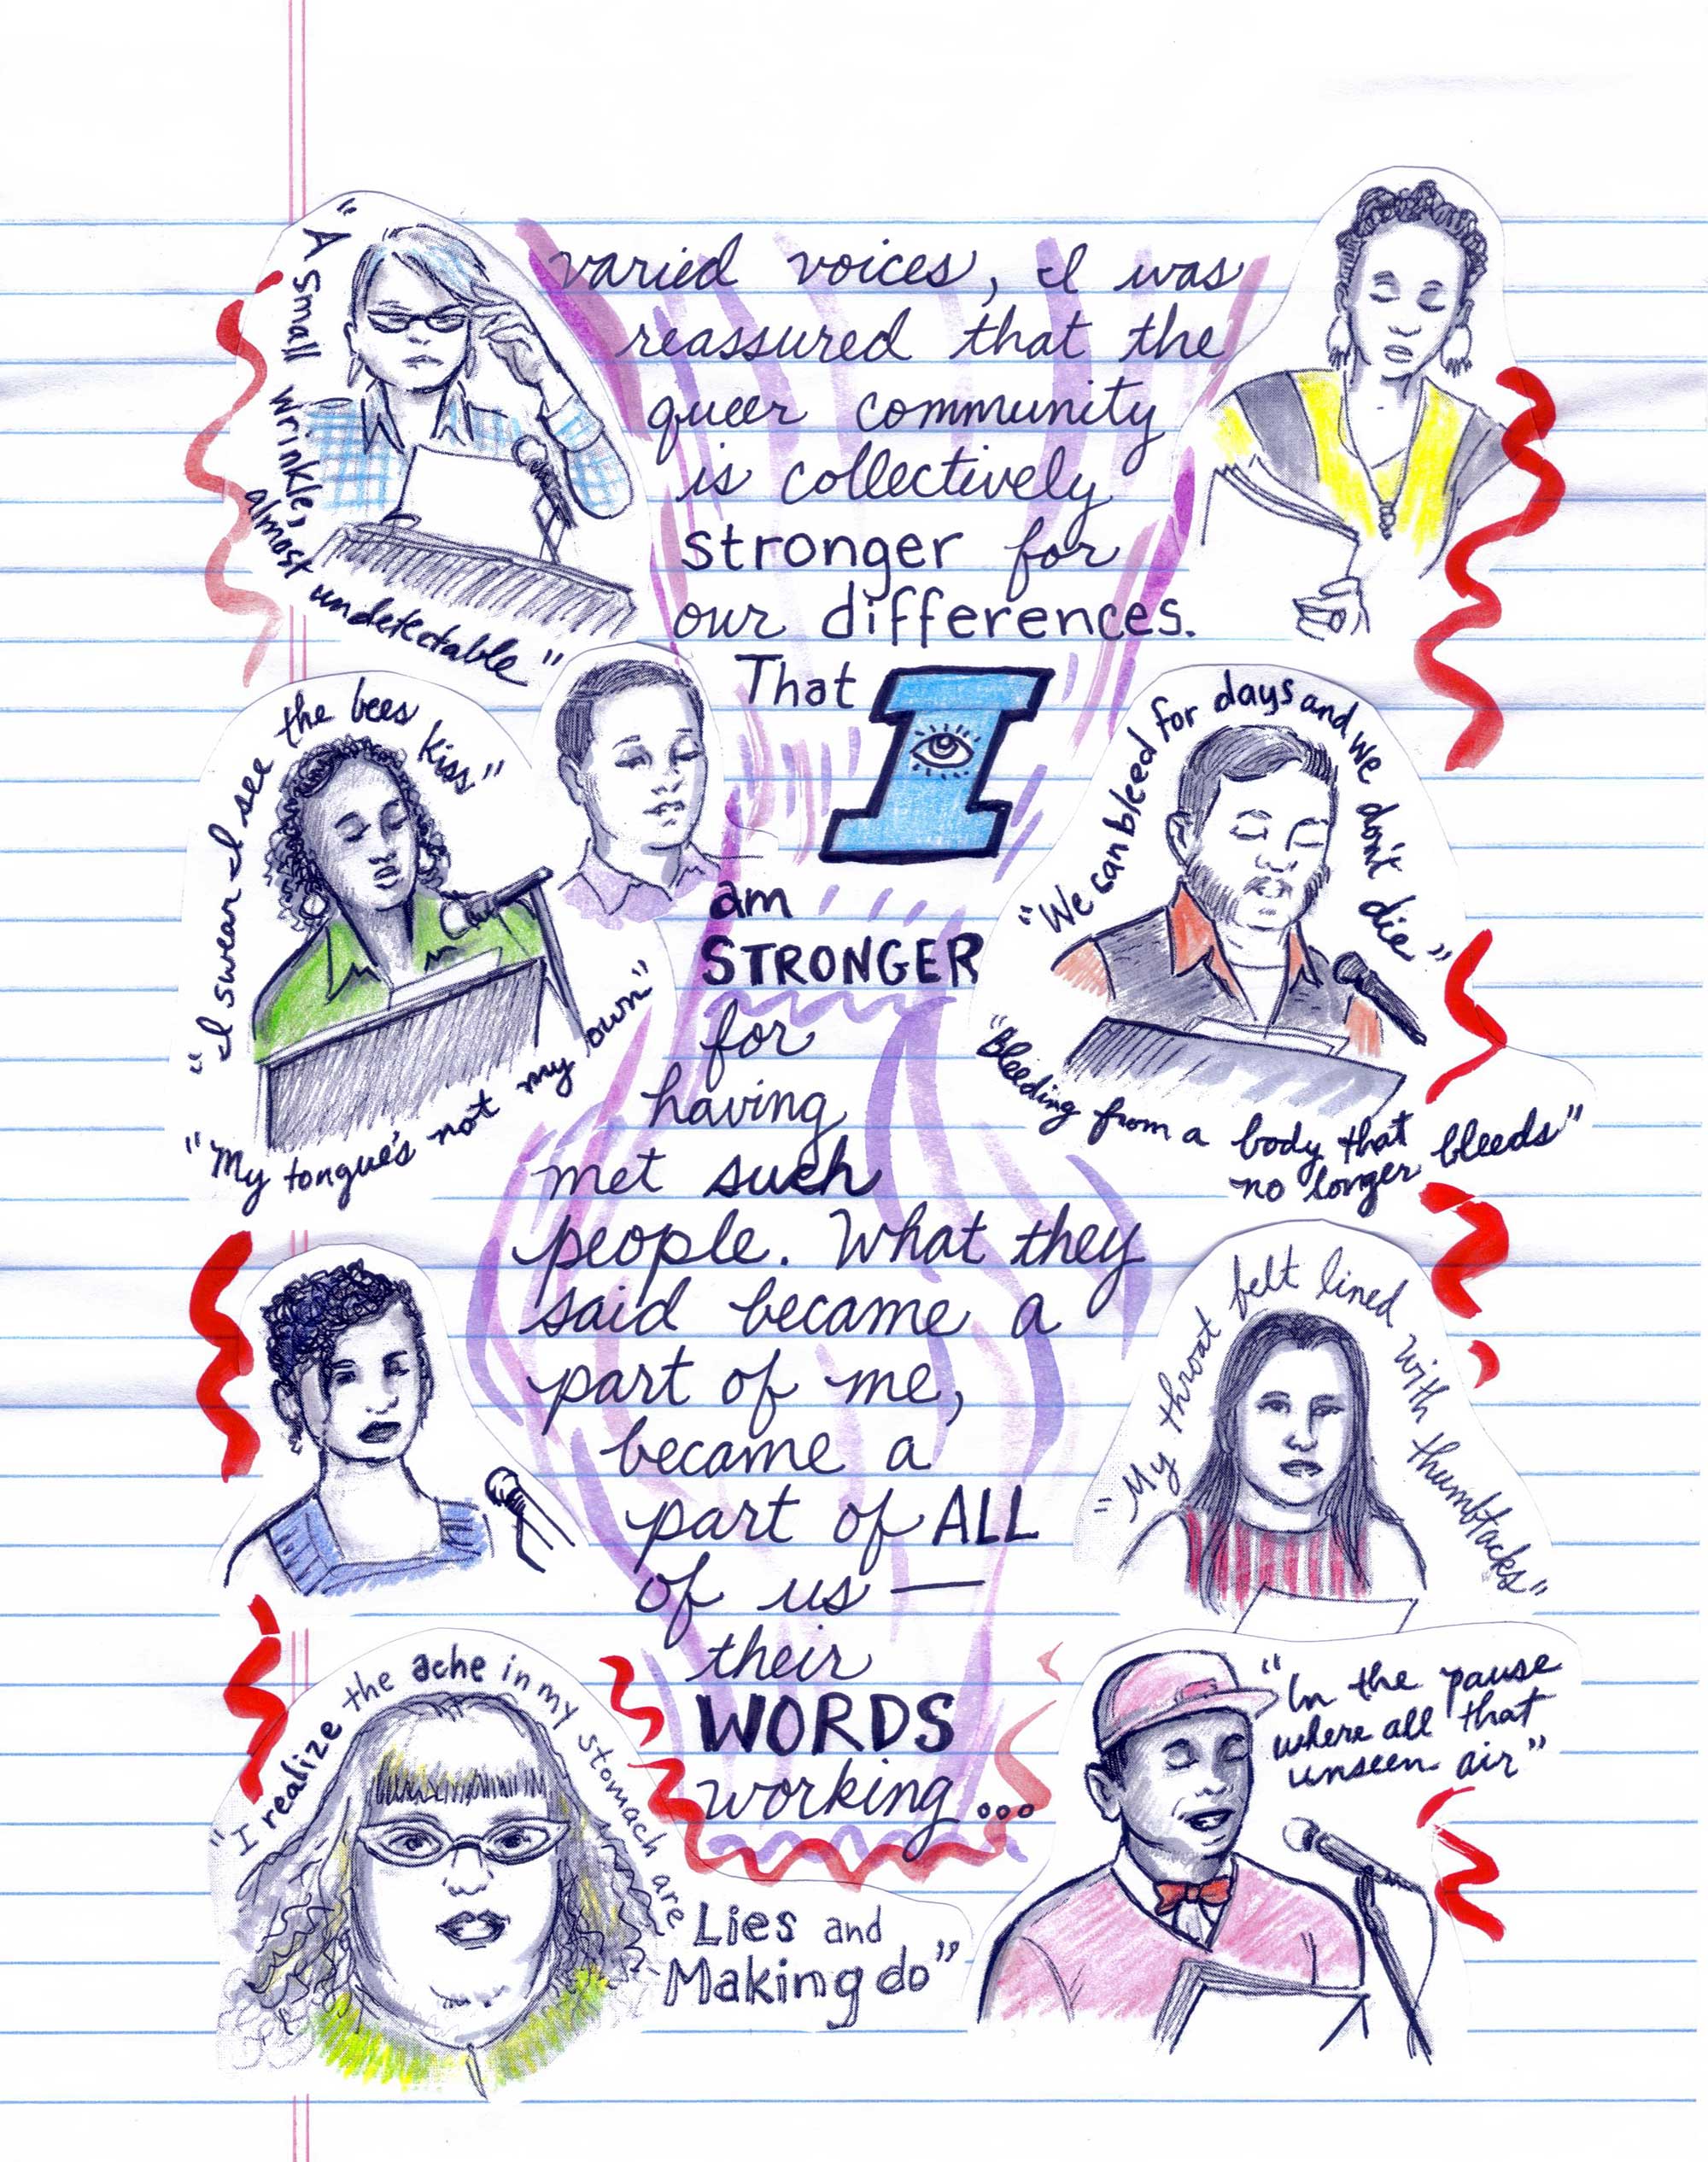 "A small wrinkle,
almost
undetectable"
varied voices, I was
reassured that the
queer community
is collectively
stronger for
our differences.
That I
am
STRONGER
for
having
met such
people. What they
said became a
part of me,
became a
part of ALL
of us —
their
WORDS
working...
"I swear I see the bees kiss"
"My tongue's not my own"
"We can bleed for days and we don't die"
"Bleeding from a body that
no longer bleeds"
"My throat felt lined with thumbtacks"
"I realize the ache in my stomach are
Lies and
Making do"
"In the pause
where all that
unseen air"